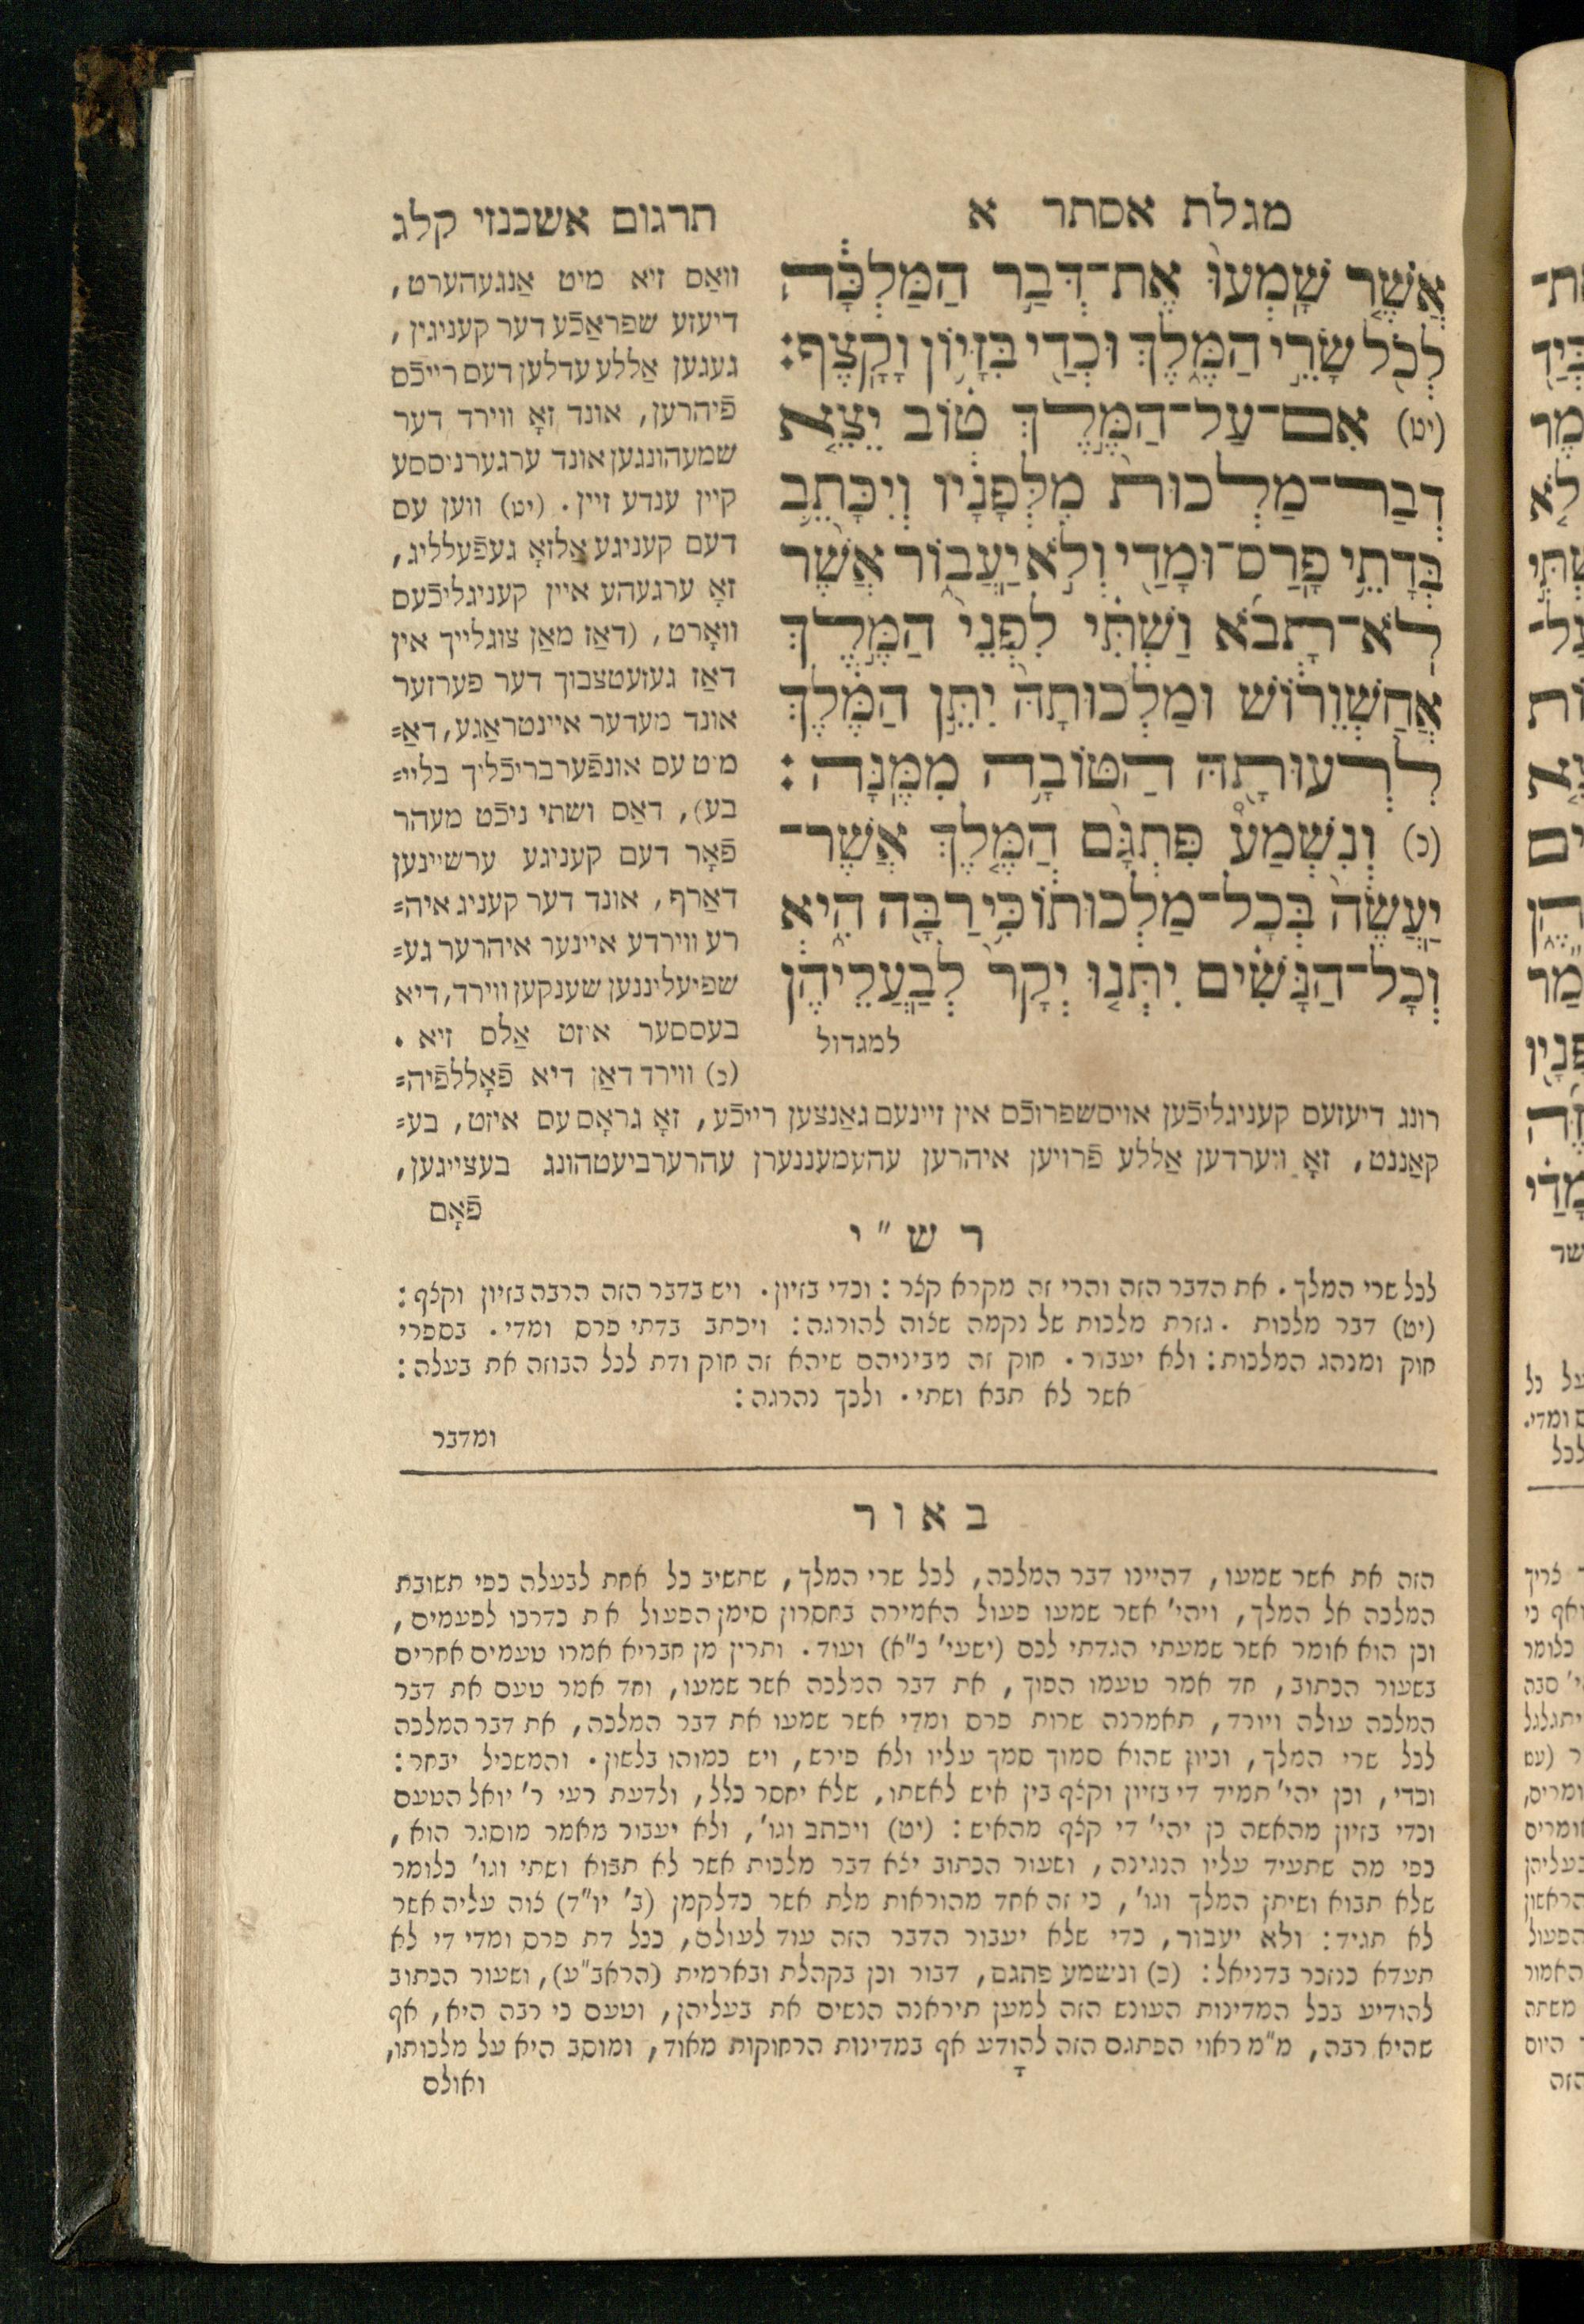 מגלת אסתר א
אֲשֶׁר שָׁמְעוּ אֶת־דְּבַר הַמַּלְכָּה
לְכֹל שָׂרֵי הַמֶּלֶךְ וּכְדַי בִּזָּיוֹן וָקָצֶף:
(יט) אִם־עַל־הַמֶּלֶךְ טוֹב יֵצֵא
דְבַר־מַלְכוּת מִלְּפָנָיו וְיִכָּתֵב
בְּדָתֵי פָרַס־וּמָדַי וְלֹא יַעֲבוֹר אֲשֶׁר
לֹא־תָבֹא וַשְׁתִּי לִפְנֵי הַמֶּלֶךְ
אֲחַשְׁוֵרוֹשׁ וּמַלְכוּתָהּ יִתֵּן הַמֶּלֶךְ
לִרְעוּתָהּ הַטּוֹבָה מִמֶּנָּה:
(כ) וְנִשְׁמַע פִּתְגָם הַמֶּלֶךְ אֲשֶׁר־
יַעֲשֶׂה בְּכָל־מַלְכוּתוֹ כִּי רַבָּה הִיא
וְכָל־הַנָּשִׁים יִתְּנוּ יְקָר לְבַעֲלֵיהֶן
למגדול
תרגום אשכנזי קלג
וואַס זיא מיט אַנגעהערט,
דיעזע שפראַכֿע דער קעניגין,
געגען אַללע עדלען דעס רייכֿס
פֿיהרען, אונד זאָ ווירד דער
שמעהונגען אונד ערגערניססע
קיין ענדע זיין. (יט) ווען עס
דעם קעניגע אַלזאָ געפֿעלליג,
זאָ ערגעהע איין קעניגליכֿעס
וואָרט, (דאַז מאַן צוגלייך אין
דאַז געזעטצבוך דער פערזער
אונד מעדער איינטראַגע, דאַ=
מיט עס אונפֿערבריכֿליך בליי=
בע), דאַס ושתי ניכֿט מעהר
פֿאָר דעם קעניגע ערשיינען
דאַרף, אונד דער קעניג איה=
רע ווירדע איינער איהרער גע=
שפיעליננען שענקען ווירד, דיא
בעססער איזט אַלס זיא.
(כ) ווירד דאַן דיא פֿאָללפֿיה=
רונג דיעזעס קעניגליכֿען אויסשפרוכֿס אין זיינעם גאַנצען רייכֿע, זאָ גראָס עס איזט, בע=
קאַננט, זאָ ווערדען אַללע פֿרויען איהרען עהעמעננערן עהרערביעטהונג בעצייגען,
פֿאָם
רש"י
לכל שרי המלך. את הדבר הזה והרי זה מקרא קצר: וכדי בזיון. ויש בדבר הזה הרבה בזיון וקצף:
(יט) דבר מלכות. גזרת מלכות של נקמה שצוה להורגה: ויכתב בדתי פרס ומדי. בספרי
חוק ומנהג המלכות: ולא יעבור. חוק זה מביניהם שיהא זה חוק ודת לכל הבוזה את בעלה:
אשר לא תבא ושתי. ולכך נהרגה:
ומדבר
באור
הזה את אשר שמעו, דהיינו דבר המלכה, לכל שרי המלך, שתשיב כל אחת לבעלה כפי תשובת
המלכה אל המלך, ויהי' אשר שמעו פעול האמירה בחסרון סימן הפעול את כדרכו לפעמים,
וכן הוא אומר אשר שמעתי הגדתי לכם (ישעי' כ"א) ועוד. ותרין מן חבריא אמרו טעמים אחרים
בשעור הכתוב, חד אמר טעמו הפוך, את דבר המלכה אשר שמעו, וחד אמר טעם את דבר
המלכה עולה ויורד, תאמרנה שרות פרס ומדי אשר שמעו את דבר המלכה, את דבר המלכה
לכל שרי המלך, וכיון שהוא סמוך סמך עליו ולא פירש, ויש כמוהו בלשון. והמשכיל יבחר:
וכדי, וכן יהי' תמיד די בזיון וקצף בין איש לאשתו, שלא יחסר כלל, ולדעת רעי ר' יואל הטעם
וכדי בזיון מהאשה כן יהי' די קצף מהאיש: (יט) ויכתב וגו', ולא יעבור מאמר מוסגר הוא,
כפי מה שתעיד עליו הנגינה, ושעור הכתוב יצא דבר מלכות אשר לא תבוא ושתי וגו' כלומר
שלא תבוא ושיתן המלך וגו', כי זה אחד מהוראות מלת אשר כדלקמן (ב' יו"ד) צוה עליה אשר
לא תגיד: ולא יעבור, כדי שלא יעבור הדבר הזה עוד לעולם, ככל דת פרס ומדי די לא
תעדא כנזכר בדניאל: (כ) ונשמע פתגם, דבור וכן בקהלת ובארמית (הראב"ע), ושעור הכתוב
להודיע בכל המדינות העונש הזה למען תיראנה הנשים את בעליהן, וטעם כי רבה היא, אף
שהיא רבה, מ"מ ראוי הפתגם הזה להוָדע אף במדינות הרחוקות מאוד, ומוסב היא על מלכותו,
ואולם